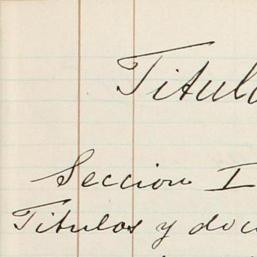 Titulo
Seccion I
Titulos y docu